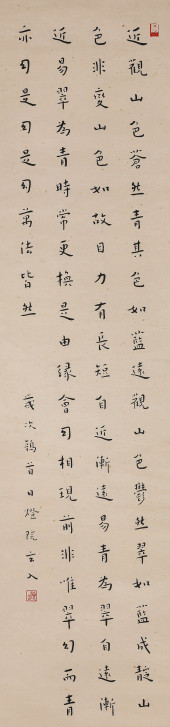 近觀山色蒼然青其色如藍遠觀山色鬱然翠如藍成靛山
色非變山色如故目力有長短自近漸遠易青為翠自遠漸
近易翠為青時常更換是由緣會司相現前非唯翠幻而青
亦司是司是司萬法皆然
歲次鶉首日燈院玄入